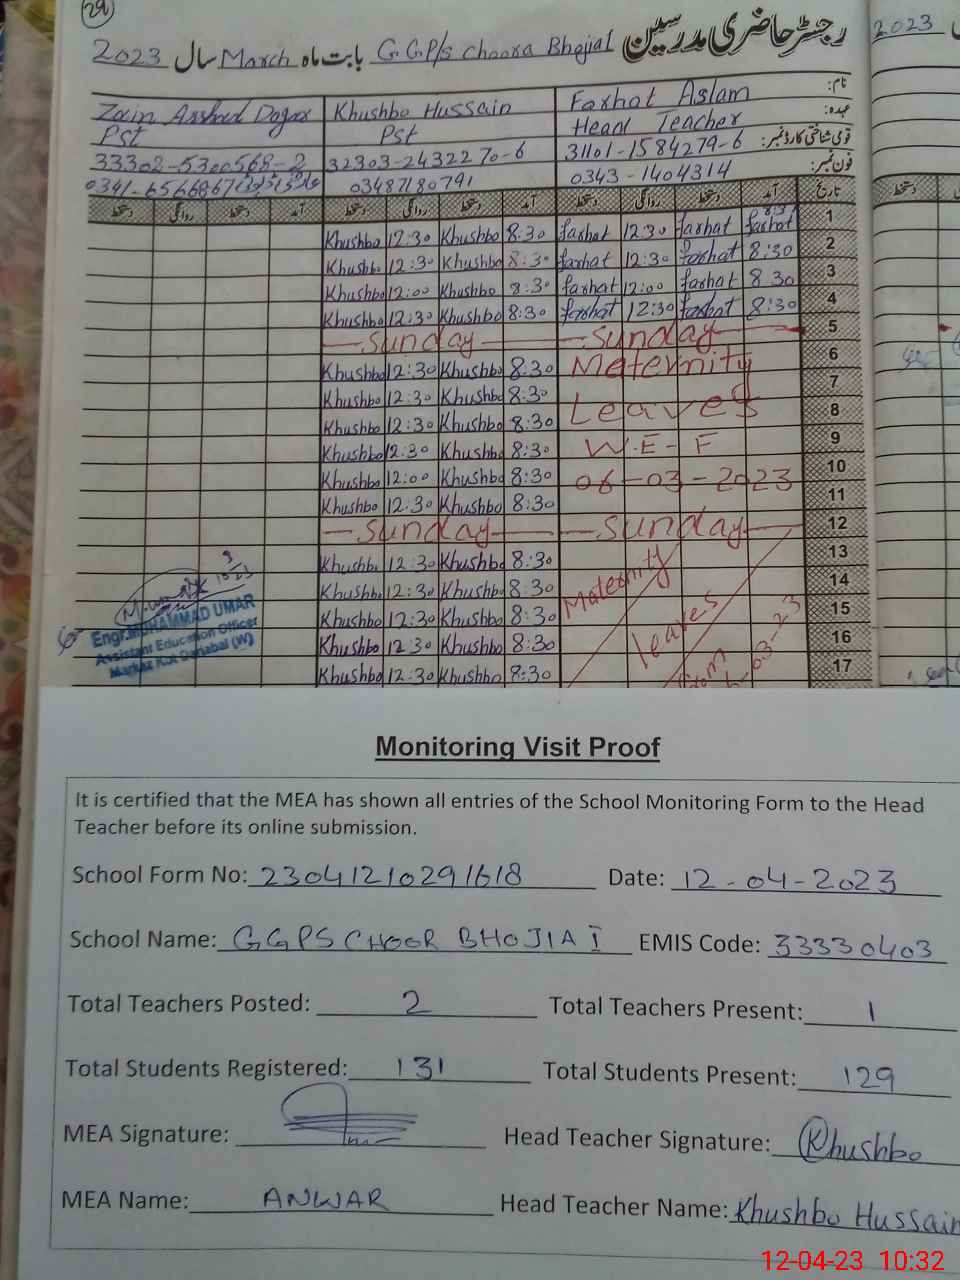 29
2023 سال March بابت ماہ GGP/s Choora Bhojial رجسٹر حاضری مدرسین 2023
Zain Arshad Dogar Khushbo Hussain Farhat Aslam نام:
Pst Pst Head Teacher عہدہ:
33302-5300568-2 32303-2432270-6 31101-1584279-6 قومی شناختی کارڈ نمبر:
03487180791 0343-1404314 فون نمبر:
دستخط روانگی دستخط آمد دستخط روانگی دستخط آمد دستخط روانگی دستخط آمد تاریخ
Khushbo 12:30 Khushbo 8:30 farhat 12:30 farhat farhat 8:30 1
Khushbo 12:30 Khushbo 8:30 farhat 12:30 farhat 8:30 2
Khushbo 12:00 Khushbo 8:30 farhat 12:00 farhat 8 30 3
Khushbo 12:30 Khushbo 8:30 farhat 12:30 farhat 8:30 4
Sunday Sunday 5
Khushbo 12:30 Khushbo 8:30 Maternity 6
Khushbo 12:30 Khushbo 8:30 7
Khushbo 12:30 Khushbo 8:30 Leaves 8
Khushbo 12:30 Khushbo 8:30 W.E-F 9
Khushbo 12:00 Khushbo 8:30 06-03-2023 10
Khushbo 12:30 Khushbo 8:30 11
Sunday Sunday 12
Khushbo 12:30 Khushbo 8:30 13
Khushbo 12:30 Khushbo 8:30 Maternity 14
Khushbo 12:30 Khushbo 8:30 leaves 15
Khushbo 12 30 Khushbo 8:30 from 16
Khushbo 12:30 Khushbo 8:30 03-23 17
Engr.MUHAMMAD UMAR
Assistant Education Officer
Markaz Kot Danabal (W)
Monitoring Visit Proof
It is certified that the MEA has shown all entries of the School Monitoring Form to the Head
Teacher before its online submission.
School Form No: 23041210291618 Date: 12-04-2023
School Name: GGPS CHOOR BHOJIAI EMIS Code: 33330403
Total Teachers Posted: 2 Total Teachers Present: 1
Total Students Registered: 131 Total Students Present: 129
MEA Signature: Head Teacher Signature: Khushbo
MEA Name: ANWAR Head Teacher Name: Khushbo Hussain
12-04-23 10:32